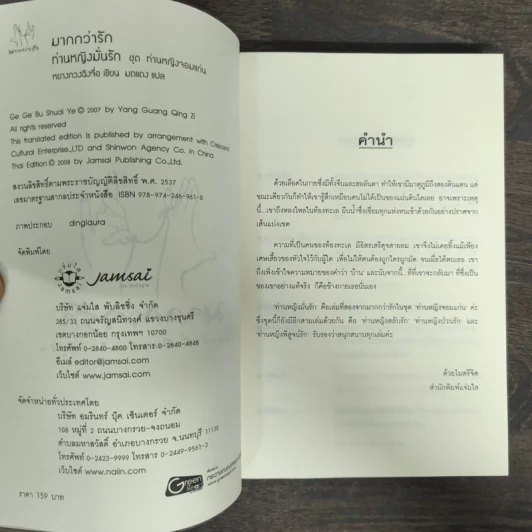 มากกว่ารัก
มากกว่ารัก
ท่านหญิงมั่นรัก ชุด ท่านหญิงจอมแก่น
หยางกวงฉิงจื่อ เขียน มดแดง แปล
Ge Ge Bu Shuai Ye © 2007 by Yang Guang Qing Zi
All rights reserved
This translated edition is published by arrangement with Crescent
Cultural Enterprise.,LTD and Shinwon Agency Co. in China
Thai Edition © 2008 by Jamsai Publishing Co.,Ltd.
สงวนลิขสิทธิ์ตามพระราชบัญญัติลิขสิทธิ์ พ.ศ. 2537
เลขมาตรฐานสากลประจำหนังสือ ISBN 978-974-246-961-0
ภาพประกอบ dinglaura
จัดพิมพ์โดย
Jamsai
บริษัท แจ่มใส พับลิชชิ่ง จำกัด
285/33 ถนนจรัญสนิทวงศ์ แขวงบางขุนศรี
เขตบางกอกน้อย กรุงเทพฯ 10700
โทรศัพท์ 0-2840-4800 โทรสาร 0-2840-4848
อีเมล์ editor@jamsai.com
เว็บไซต์ www.jamsai.com
จัดจำหน่ายทั่วประเทศโดย
บริษัท อมรินทร์ บุ๊ค เซ็นเตอร์ จำกัด
108 หมู่ที่ 2 ถนนบางกรวย-จงถนอม
ตำบลมหาสวัสดิ์ อำเภอบางกรวย จ.นนทบุรี 11130
โทรศัพท์ 0-2423-9999 โทรสาร 0-2449-9561-3
เว็บไซต์ www.naiin.com
ราคา 159 บาท
Green
คำนำ
ด้วยเลือดในกายซึ่งมีทั้งจีนและฮอลันดา ทำให้เขามีมาตุภูมิถึงสองดินแดน แต่
ขณะเดียวกันก็ทำให้เขารู้สึกเหมือนตนไม่ได้เป็นของแผ่นดินใดเลย อาจเพราะเหตุ
นี้...เขาถึงหลงใหลในท้องทะเล ผืนน้ำซึ่งเชื่อมทุกแห่งหนเข้าด้วยกันอย่างปราศจาก
เส้นแบ่งเขต
ความที่เป็นคนของท้องทะเล มีอิสรเสรีดุจสายลม เขาจึงไม่เคยทิ้งแม้เพียง
เศษเสี้ยวของหัวใจไว้กับผู้ใด เพื่อไม่ให้ตนต้องถูกใครผูกมัด จนเมื่อได้พบเธอ เขา
ถึงเพิ่งเข้าใจความหมายของคำว่า 'บ้าน' และนับจากนี้...ที่ที่เขาจะกลับมา ที่ซึ่งเป็น
ของเขาอย่างแท้จริง ก็คือข้างกายเธอนั่นเอง
'ท่านหญิงมั่นรัก' คือเล่มที่สองจากมากกว่ารักในชุด 'ท่านหญิงจอมแก่น' ค่ะ
ซึ่งชุดนี้ก็ยังมีอีกสามเล่มด้วยกัน คือ 'ท่านหญิงสลับรัก' 'ท่านหญิงป่วนรัก' และ
'ท่านหญิงพิสูจน์รัก' รับรองว่าสนุกสนานทุกเล่มค่ะ
ด้วยไมตรีจิต
สำนักพิมพ์แจ่มใส